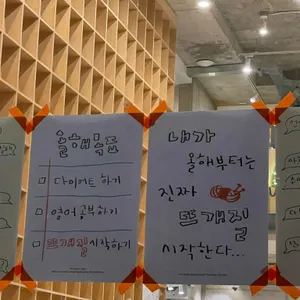 올해목표
다이어트 하기
영어 공부하기
뜨개질 시작하기
내가
올해부터는
진짜
뜨개질
시작한다...